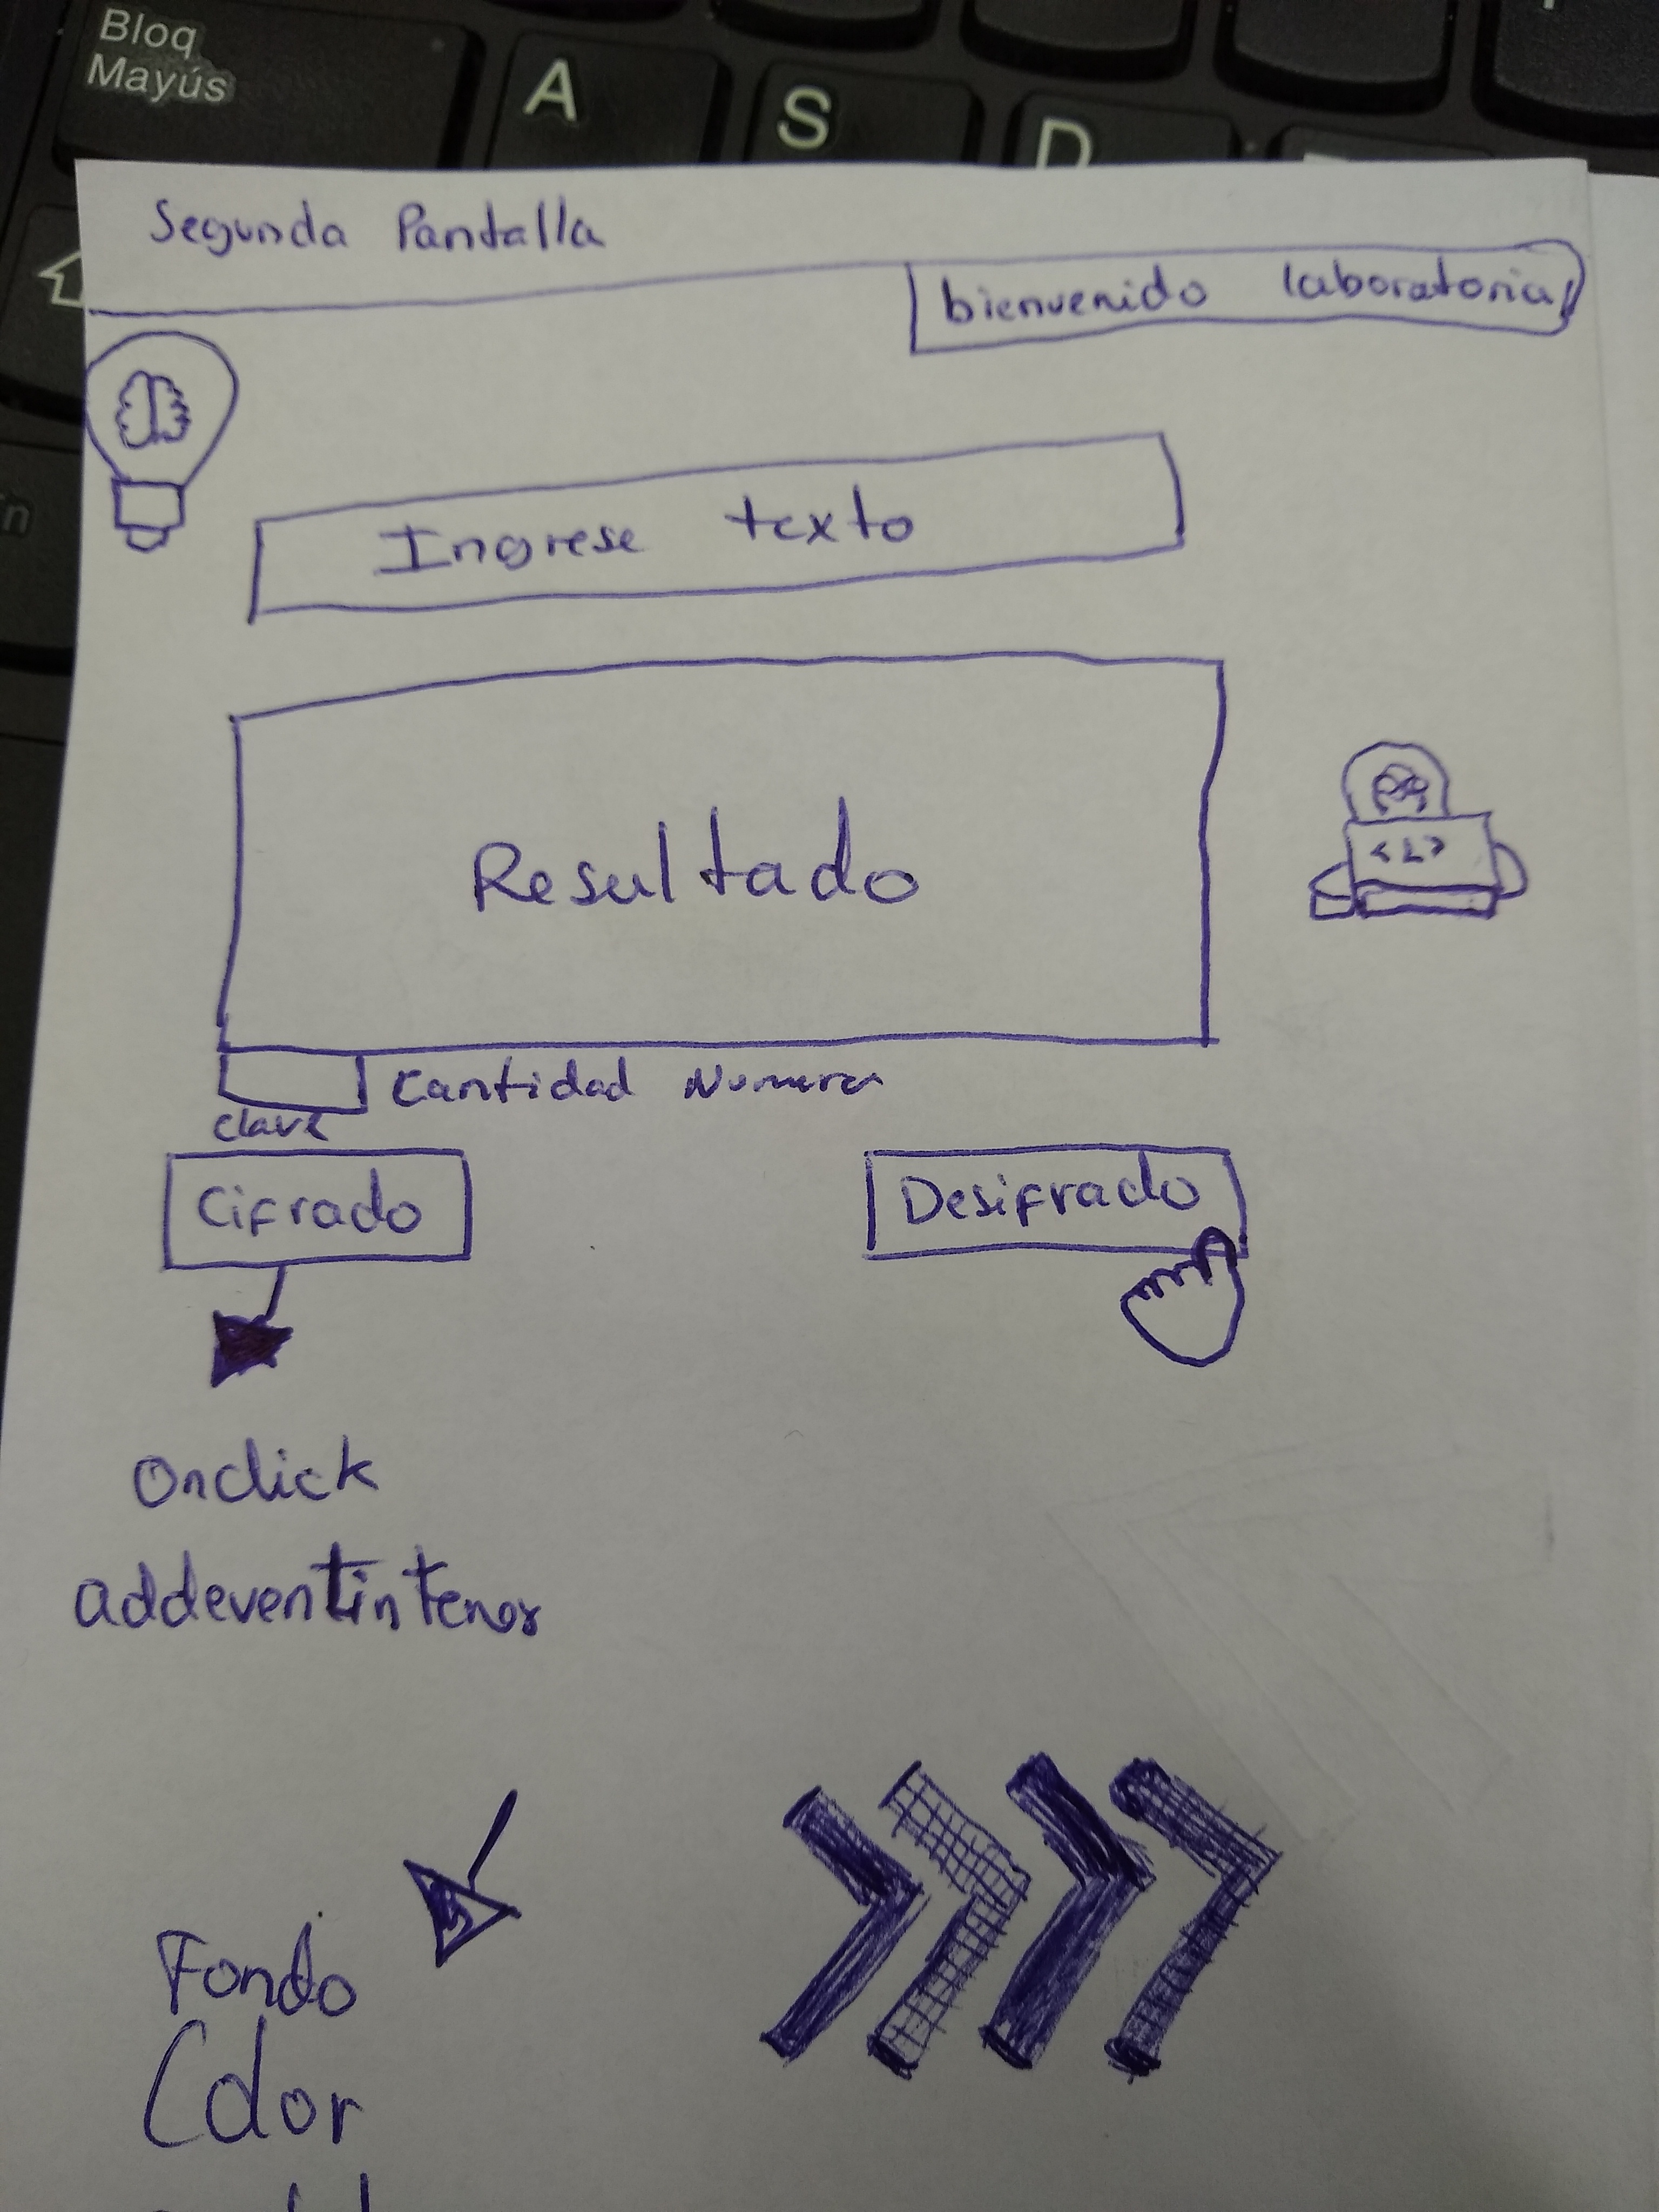 Bloq
Mayús
A
S
D
Segunda Pantalla
bienvenido laboratoria
Ingrese texto
Resultado
<L>
Cantidad Numero
clave
Cifrado
Desifrado
Onclick
addeventintener
Fondo
Color